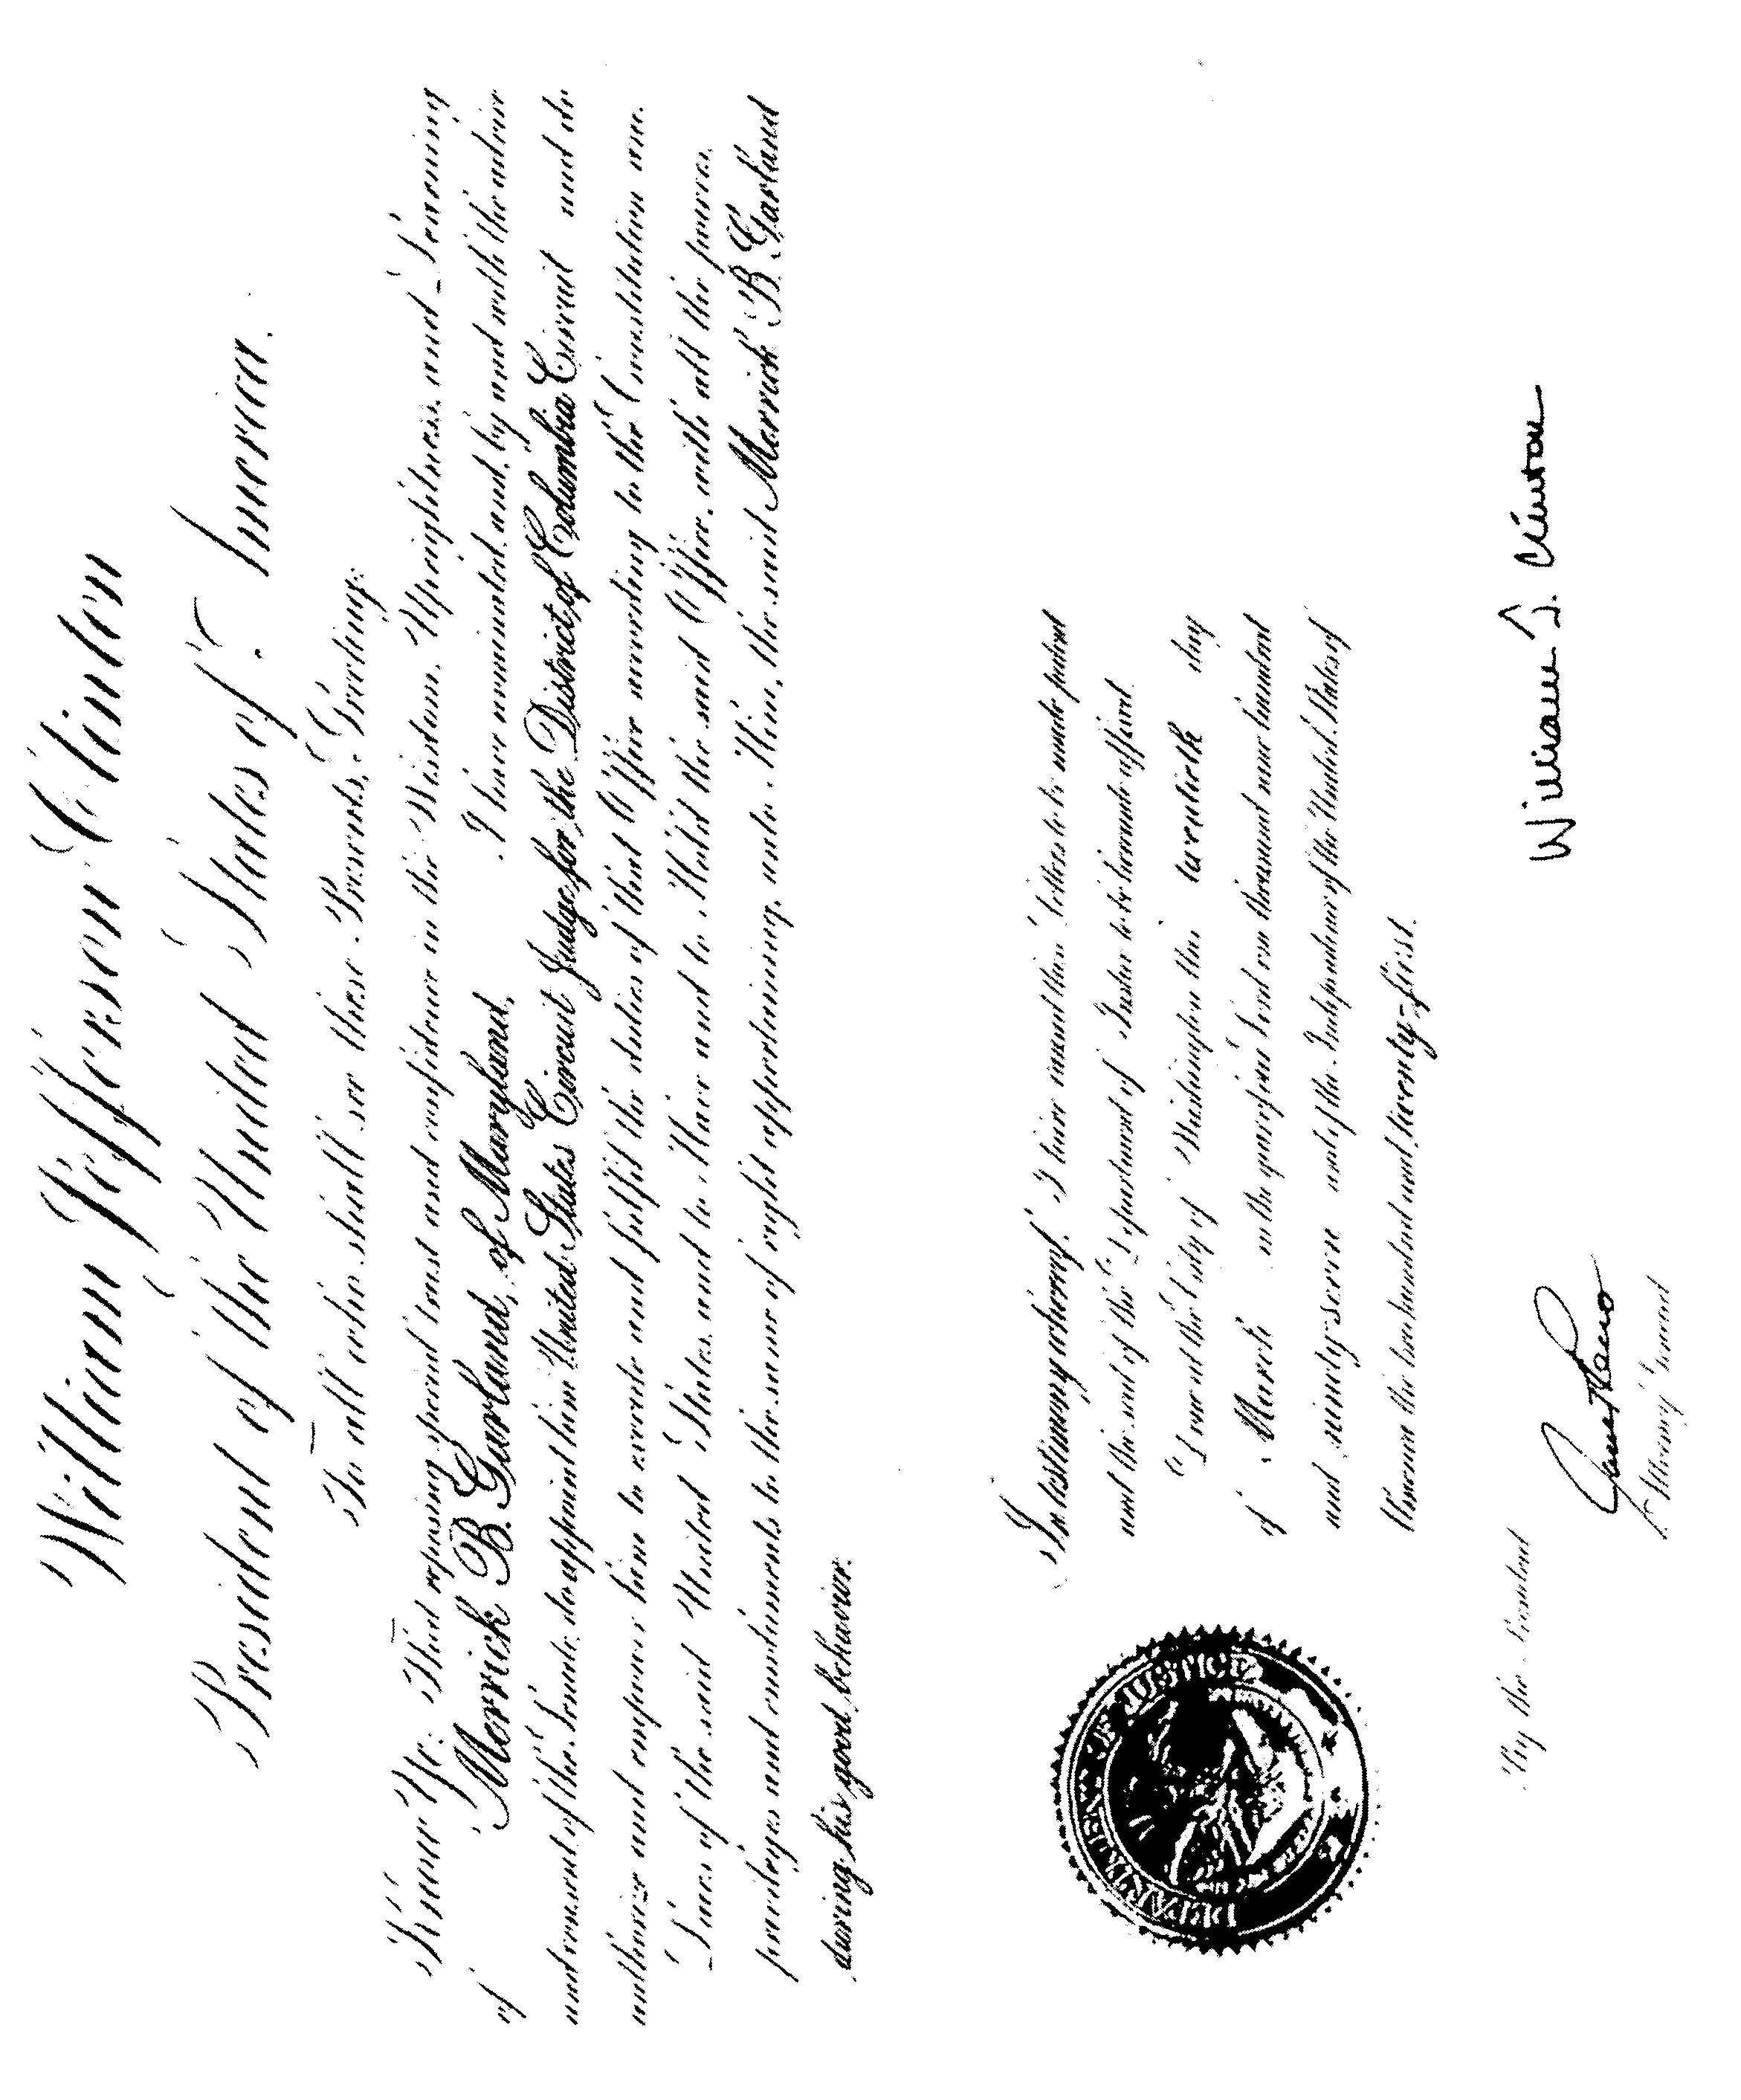 William Jefferson Clinton
President of the United States of America.
To all who shall see these Presents, Greeting:
Know Ye: That reposing special trust and confidence in the Wisdom, Uprightness, and Learning
of Merrick B. Garland, of Maryland, I have nominated, and, by and with the advice
and consent of the Senate, do appoint him United States Circuit Judge for the District of Columbia Circuit and do
authorize and empower him to execute and fulfil the duties of that Office according to the Constitution and
Laws of the said United States, and to Have and to Hold the said Office, with all the powers,
privileges and emoluments to the same of right appertaining, unto Him, the said Merrick B. Garland
during his good behavior.
In testimony whereof, I have caused these Letters to be made patent
and the seal of the Department of Justice to be hereunto affixed.
Done at the City of Washington this twentieth day
of March in the year of our Lord one thousand nine hundred
and ninety-seven and of the Independence of the United States of
America the two hundred and twenty-first.
DEPARTMENT OF JUSTICE
William J. Clinton
By the President
Janet Reno
Attorney General